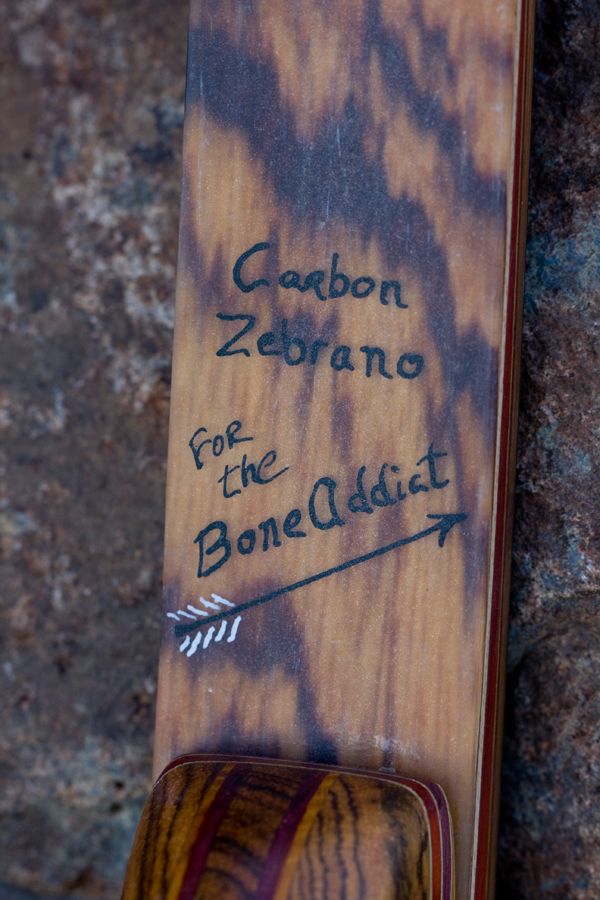 Carbon
Zebrano
FOR
the
Bone Addict